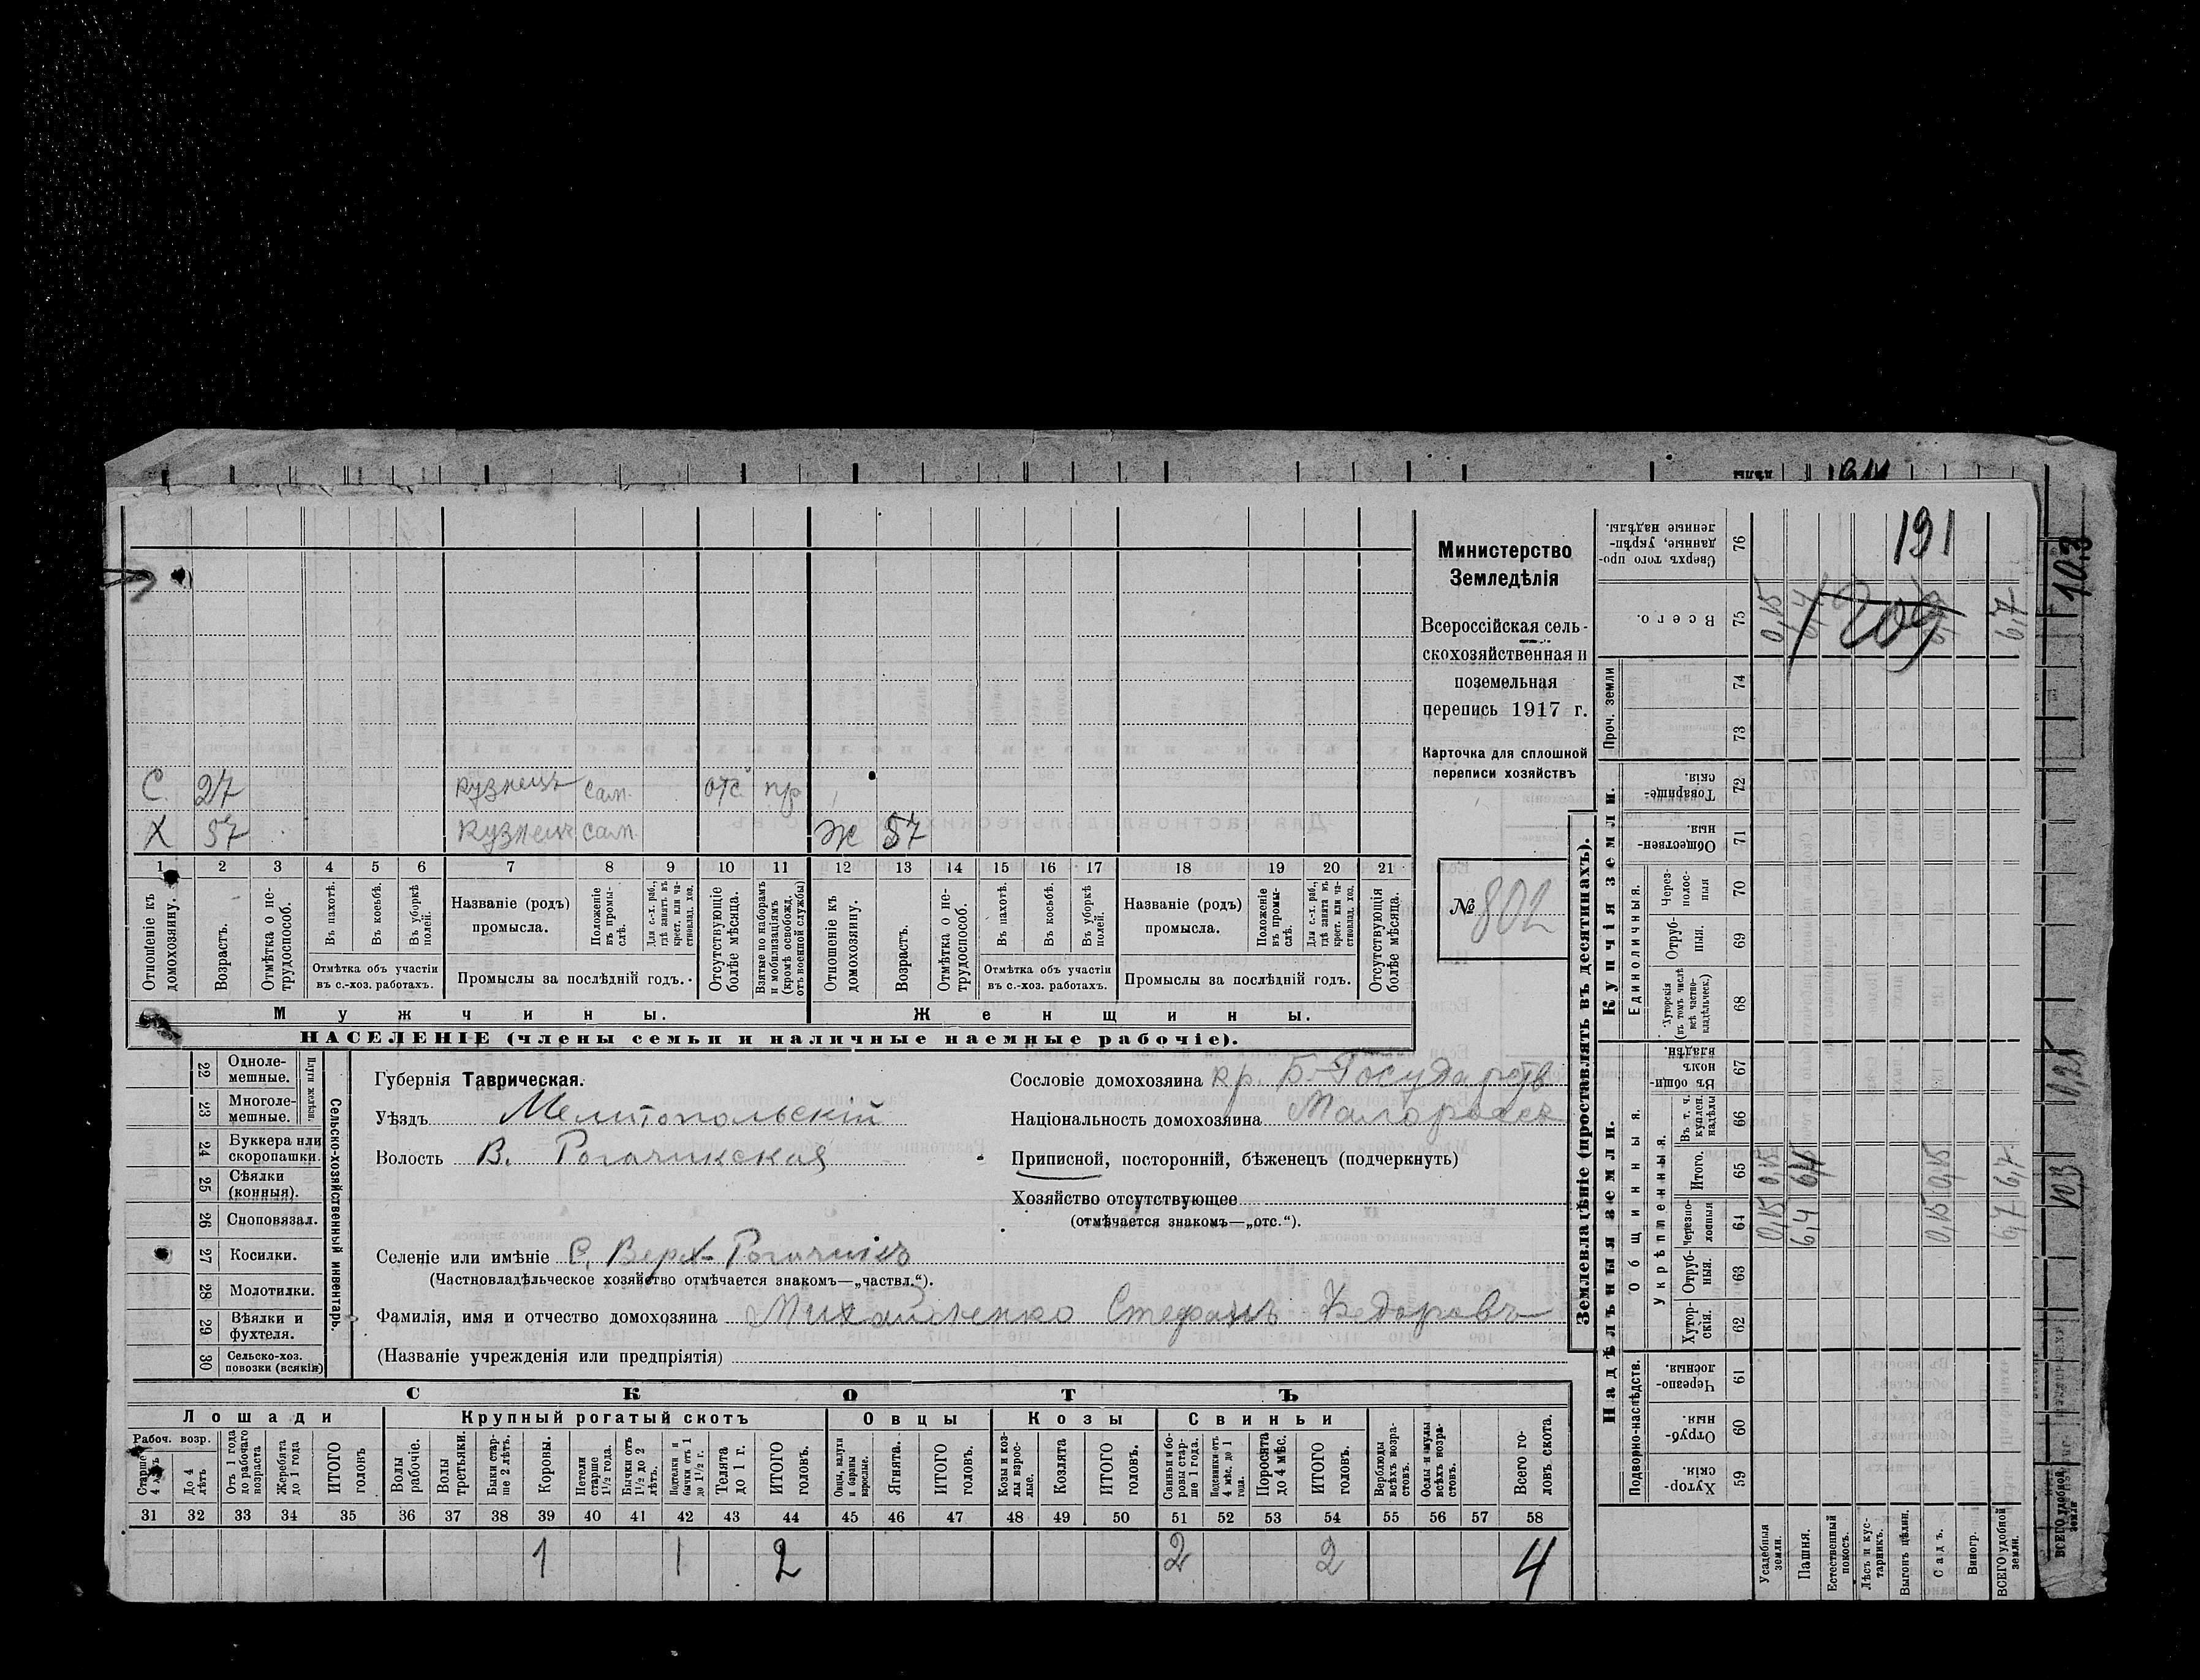 Министерство
Земледѣлія
Всероссійская сель-
скохозяйственная и
поземельная
перепись 1917 г.
Карточка для сплошной
переписи хозяйствъ
№ 802
С 27 кузнецъ сам. отс пр
Х 57 кузнецъ сам. Ж 57
1 2 3 4 5 6 7 8 9 10 11 12 13 14 15 16 17 18 19 20 21
Отношеніе къ домохозяину.
Возрастъ.
Отмѣтка о не-трудоспособ.
Въ пахотѣ.
Въ косьбѣ.
Въ уборкѣ полей.
Отмѣтка объ участіи
въ с.-хоз. работахъ.
Названіе (родъ)
промысла.
Положеніе въ промы-слѣ.
Для с.-х. раб., гдѣ занятъ въ крест. или ча-ствовлад. хоз.
Промыслы за послѣдній годъ.
Отсутствующіе болѣе мѣсяца.
Взятые по наборамъ и мобилизаціямъ (кромѣ освобожд. отъ военной службы)
Отношеніе къ домохозяину.
Возрастъ.
Отмѣтка о не-трудоспособ.
Въ пахотѣ.
Въ косьбѣ.
Въ уборкѣ полей.
Отмѣтка объ участіи
въ с.-хоз. работахъ.
Названіе (родъ)
промысла.
Положеніе въ промы-слѣ.
Для с.-х. раб., гдѣ занята въ крест. или ча-ствовлад. хоз.
Промыслы за послѣдній годъ.
Отсутствующія болѣе мѣсяца.
Мужчины.
Женщины.
НАСЕЛЕНІЕ (члены семьи и наличные наемные рабочіе).
22 Одноле-мешные.
23 Многоле-мешные.
Плуги желѣзн.
24 Буккера или скоропашки.
25 Сѣялки (конныя).
26 Сноповязал.
27 Косилки.
28 Молотилки.
29 Вѣялки и фухтеля.
30 Сельско-хоз. повозки (всякія)
Сельско-хозяйственный инвентарь.
Губернія Таврическая.
Уѣздъ Мелитопольскій
Волость В. Рогачикская
Селеніе или имѣніе С. Верх-Рогачикъ
(Частновладѣльческое хозяйство отмѣчается знакомъ—„частвл.“).
Фамилія, имя и отчество домохозяина Михайленко Стефанъ Федоровъ
(Названіе учрежденія или предпріятія)
Сословіе домохозяина кр. б. Государств
Національность домохозяина Малороссъ
Приписной, посторонній, бѣженецъ (подчеркнуть)
Хозяйство отсутствующее
(отмѣчается знакомъ—„отс.“).
СКОТЪ
Лошади
Крупный рогатый скотъ
Овцы
Козы
Свиньи
Рабоч. возр.
Старше 4 лѣтъ
До 4 лѣтъ
Отъ 1 года до рабочаго возраста
Жеребята до 1 года
ИТОГО головъ
Волы рабочіе.
Волы третьяки.
Быки стар-ше 2 лѣтъ.
Коровы.
Нетели старше 1½ года.
Бычки отъ 1½ до 2 лѣтъ.
Подтелки и бычки отъ 1 до 1½ г.
Телята до 1 г.
ИТОГО головъ.
Овцы, валухи и бараны взрослые.
Ягнята.
ИТОГО головъ.
Козы и коз-лы взрос-лые.
Козлята
ИТОГО головъ.
Свиньи и бо-ровы стар-ше 1 года.
Подсвинки отъ 4 мѣс. до 1 года.
Поросята до 4 мѣс.
ИТОГО головъ.
Верблюды всѣхъ возра-стовъ.
Ослы и мулы всѣхъ возра-стовъ.
Всего го-ловъ скота.
31 32 33 34 35 36 37 38 39 40 41 42 43 44 45 46 47 48 49 50 51 52 53 54 55 56 57 58
1 1 2 2 2 4
Землевладѣніе (проставлять въ десятинахъ).
Надѣльныя земли.
Купчія земли.
Проч. земли
Подворно-наслѣдств.
Общинныя
Укрѣпленныя.
Единоличныя.
Сверхъ того про-данные, укрѣп-ленные надѣлы. 76
Всего. 75 0,15 6,4 6,7
74
73
Товарище-скія. 72
Обществен-ныя. 71
Через-полос-ныя 70
Отруб-ныя. 69
Хуторскія (въ томъ числѣ всѣ частно-владѣльческ.) 68
Въ общи-номъ владѣн. 67
Въ т. ч. куплен. надѣлы 66
Итого. 65 0,15 6,4 0,15 6,7
Черезпо-лосныя 64 0,15 6,4 0,15 6,7
Отруб-ныя. 63
Хутор-скія. 62
Черезпо-лосныя. 61
Отруб-ныя. 60
Хутор-скія. 59
Усадебныя земли.
Пашня.
Естественный покосъ.
Лѣсъ и кус-тарникъ.
Выгонъ цѣлин.
Садъ.
Виногр.
ВСЕГО удобной земли.
191
209
10,3
10,3
ВСЕГО удобной земли